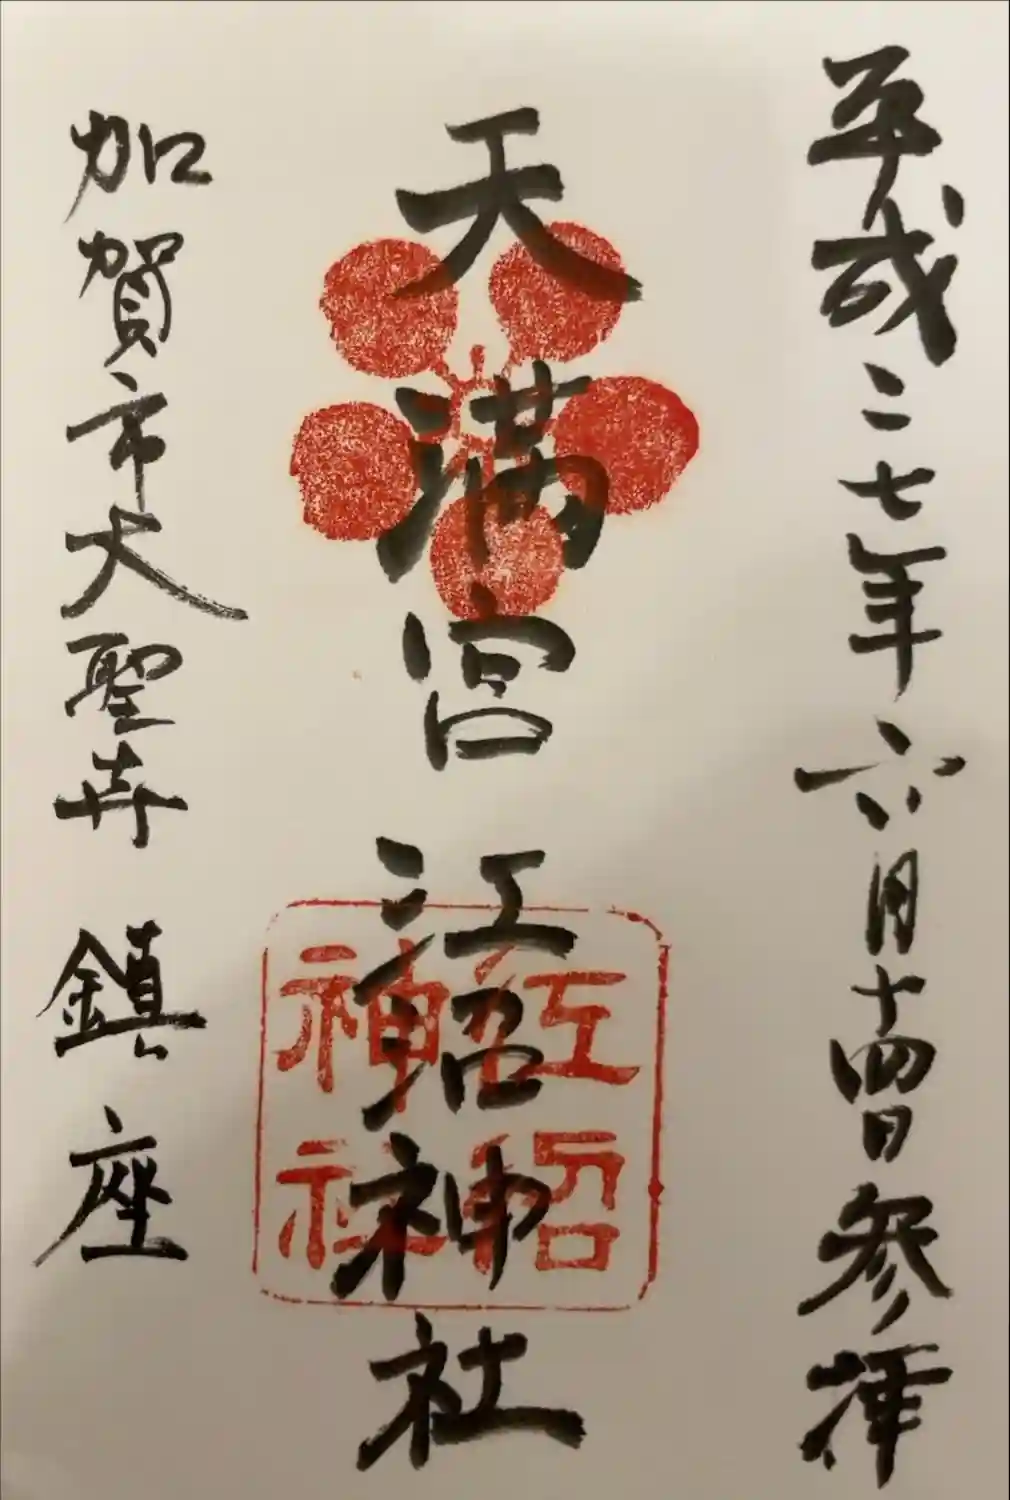 平成二七年六月十四日参拝
天満宮 江沼神社
江沼
神社
加賀市大聖寺 鎮座